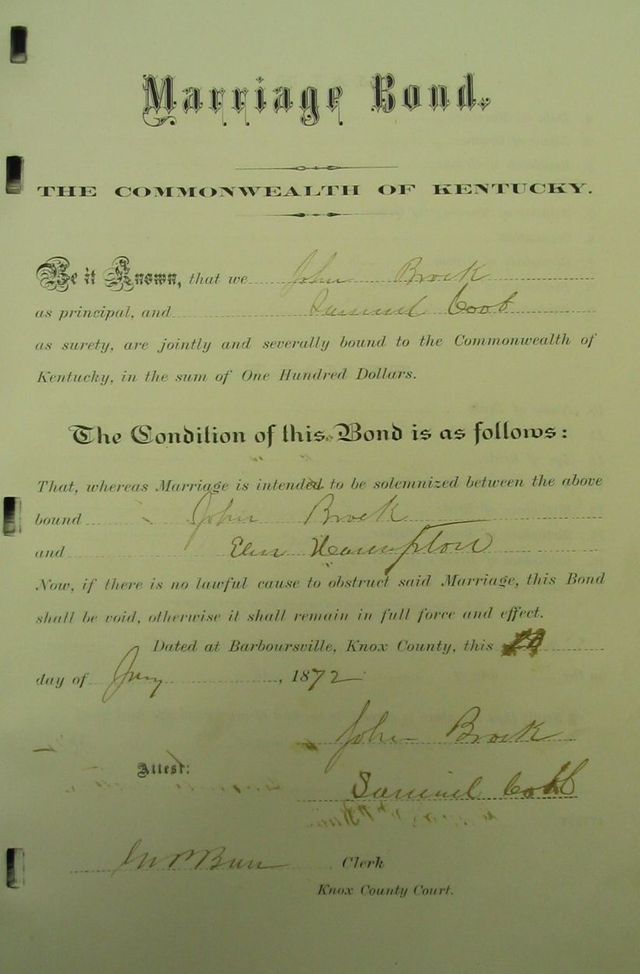 Marriage Bond.
THE COMMONWEALTH OF KENTUCKY.
Be it Known, that we John Brock
as principal, and Samuel Coob
as surety, are jointly and severally bound to the Commonwealth of
Kentucky, in the sum of One Hundred Dollars.
The Condition of this Bond is as follows:
That, whereas Marriage is intended to be solemnized between the above
bound John Brock
and Hampton
Now, if there is no lawful cause to obstruct said Marriage, this Bond
shall be void, otherwise it shall remain in full force and effect.
Dated at Barboursville, Knox County, this
day of , 1872
John Brock
Attest:
Samuel Cobb
Clerk
Knox County Court.